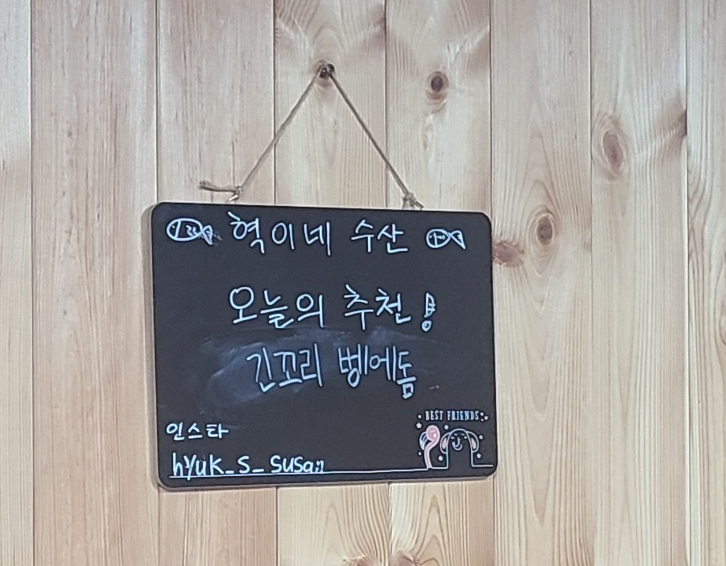 혁이네 수산
오늘의 추천!
긴꼬리 벵에돔
BEST FRIENDS
인스타
hyuk_s_susan